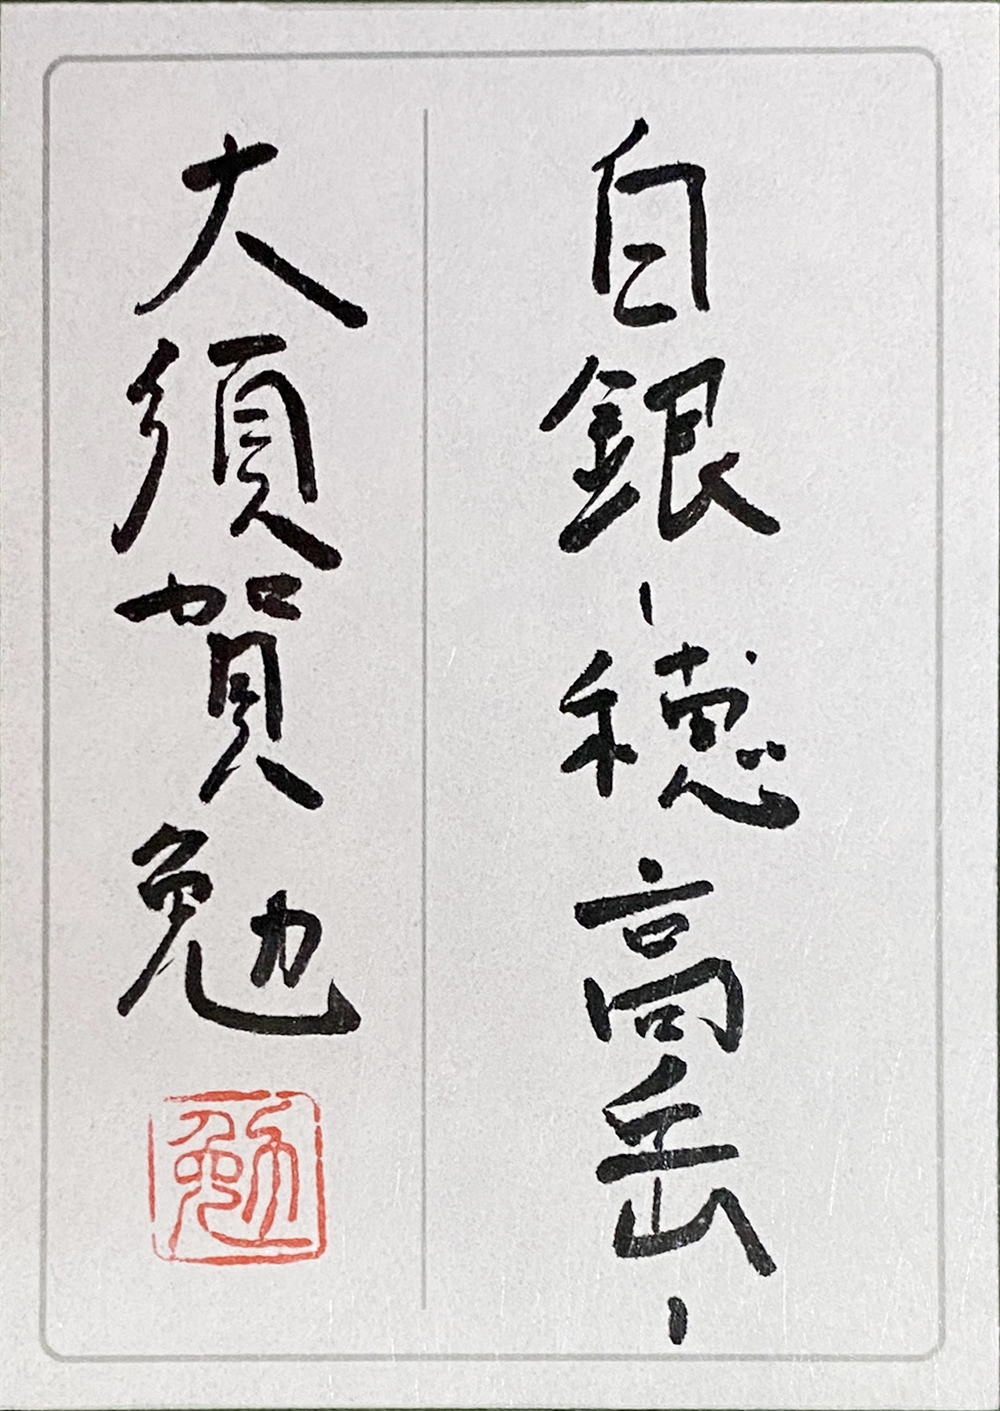 白銀-穂高岳-
大須賀勉
勉